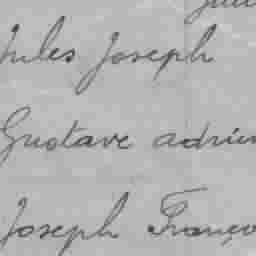 Jules Joseph
Gustave adrien
Joseph Franço